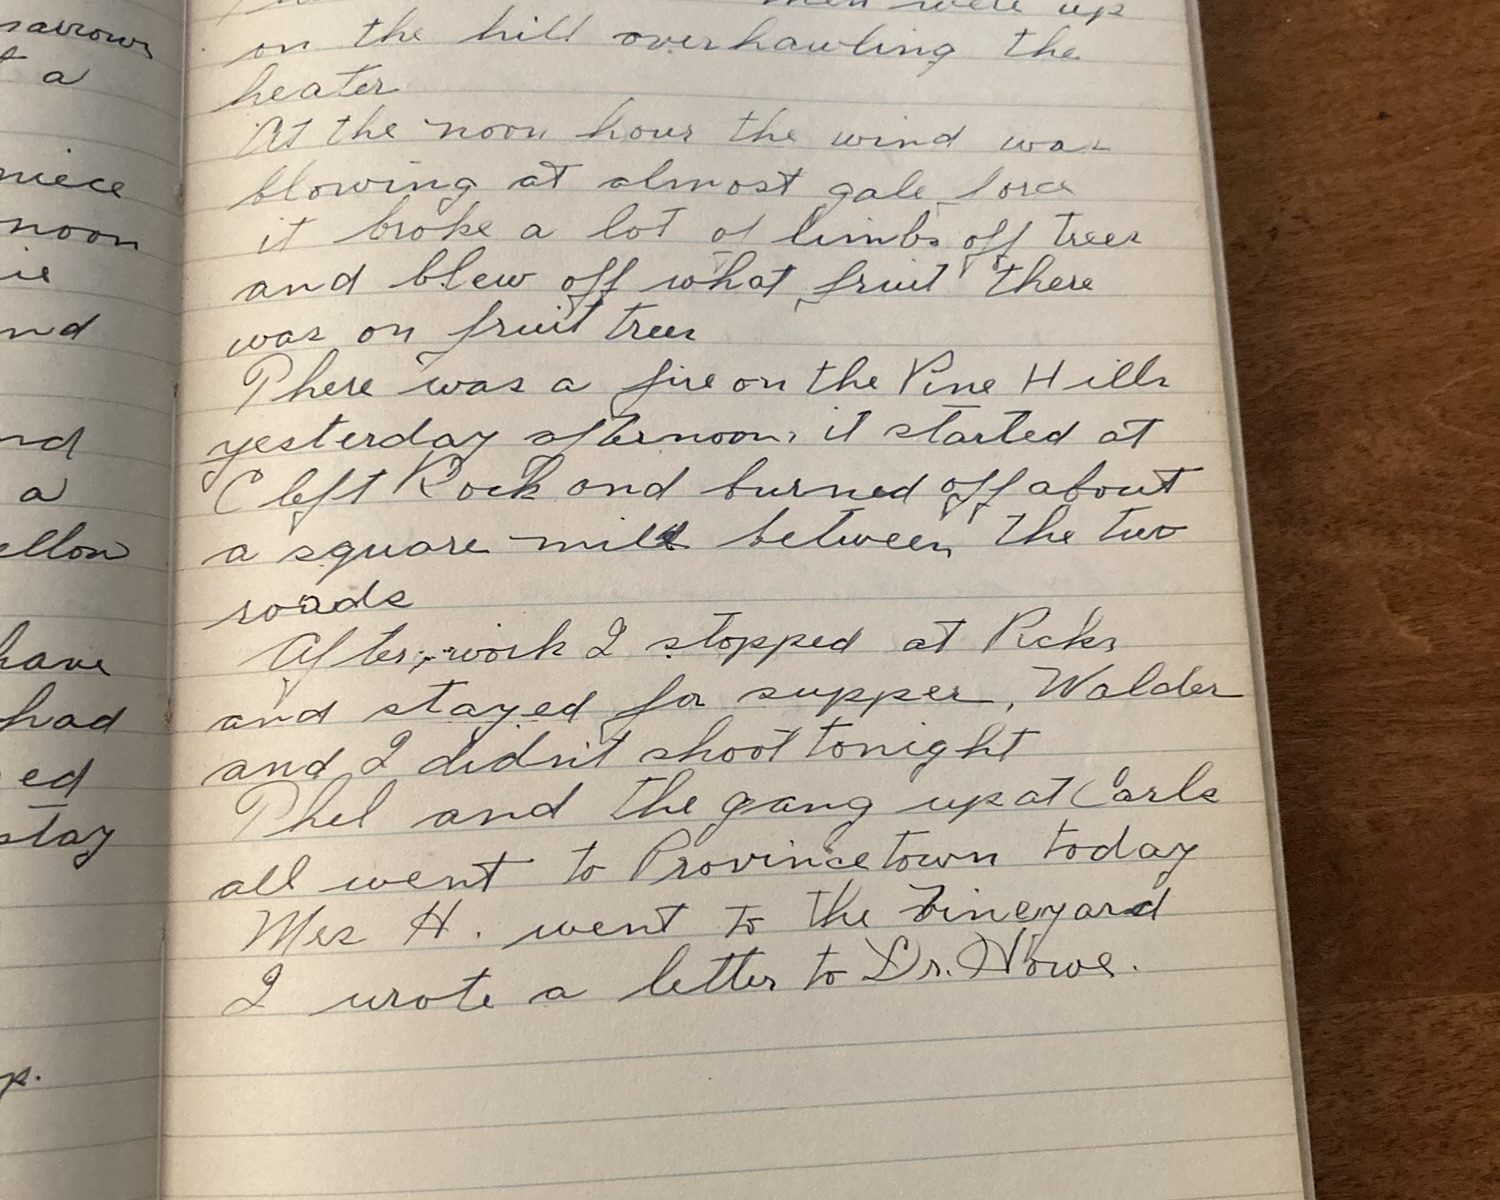 arrows
a
niece
noon
ie
nd
nd
a
ellow
have
had
ed
stay
p.
men were up
on the hill overhawling the
heater
At the noon hour the wind was
blowing at almost gale force
it broke a lot of limbs off trees
and blew off what fruit there
was on fruit trees
There was a fire on the Pine Hills
yesterday afternoon, it started at
Cleft Rock and burned off about
a square mile between the two
roads
After work I stopped at Ricks
and stayed for supper, Walder
and I didn't shoot tonight
Phil and the gang up at Carls
all went to Provincetown today
Mrs H. went to the Vineyard
I wrote a letter to Dr. Howe.